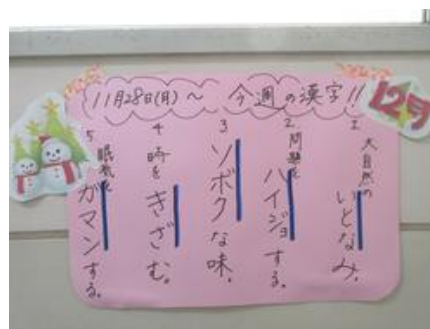 11月28日(月)～ 今週の漢字!!
12月
1 大自然のいとなみ。
2 問題をハイジョする。
3 ソボクな味。
4 時をきざむ。
5 眠気をガマンする。